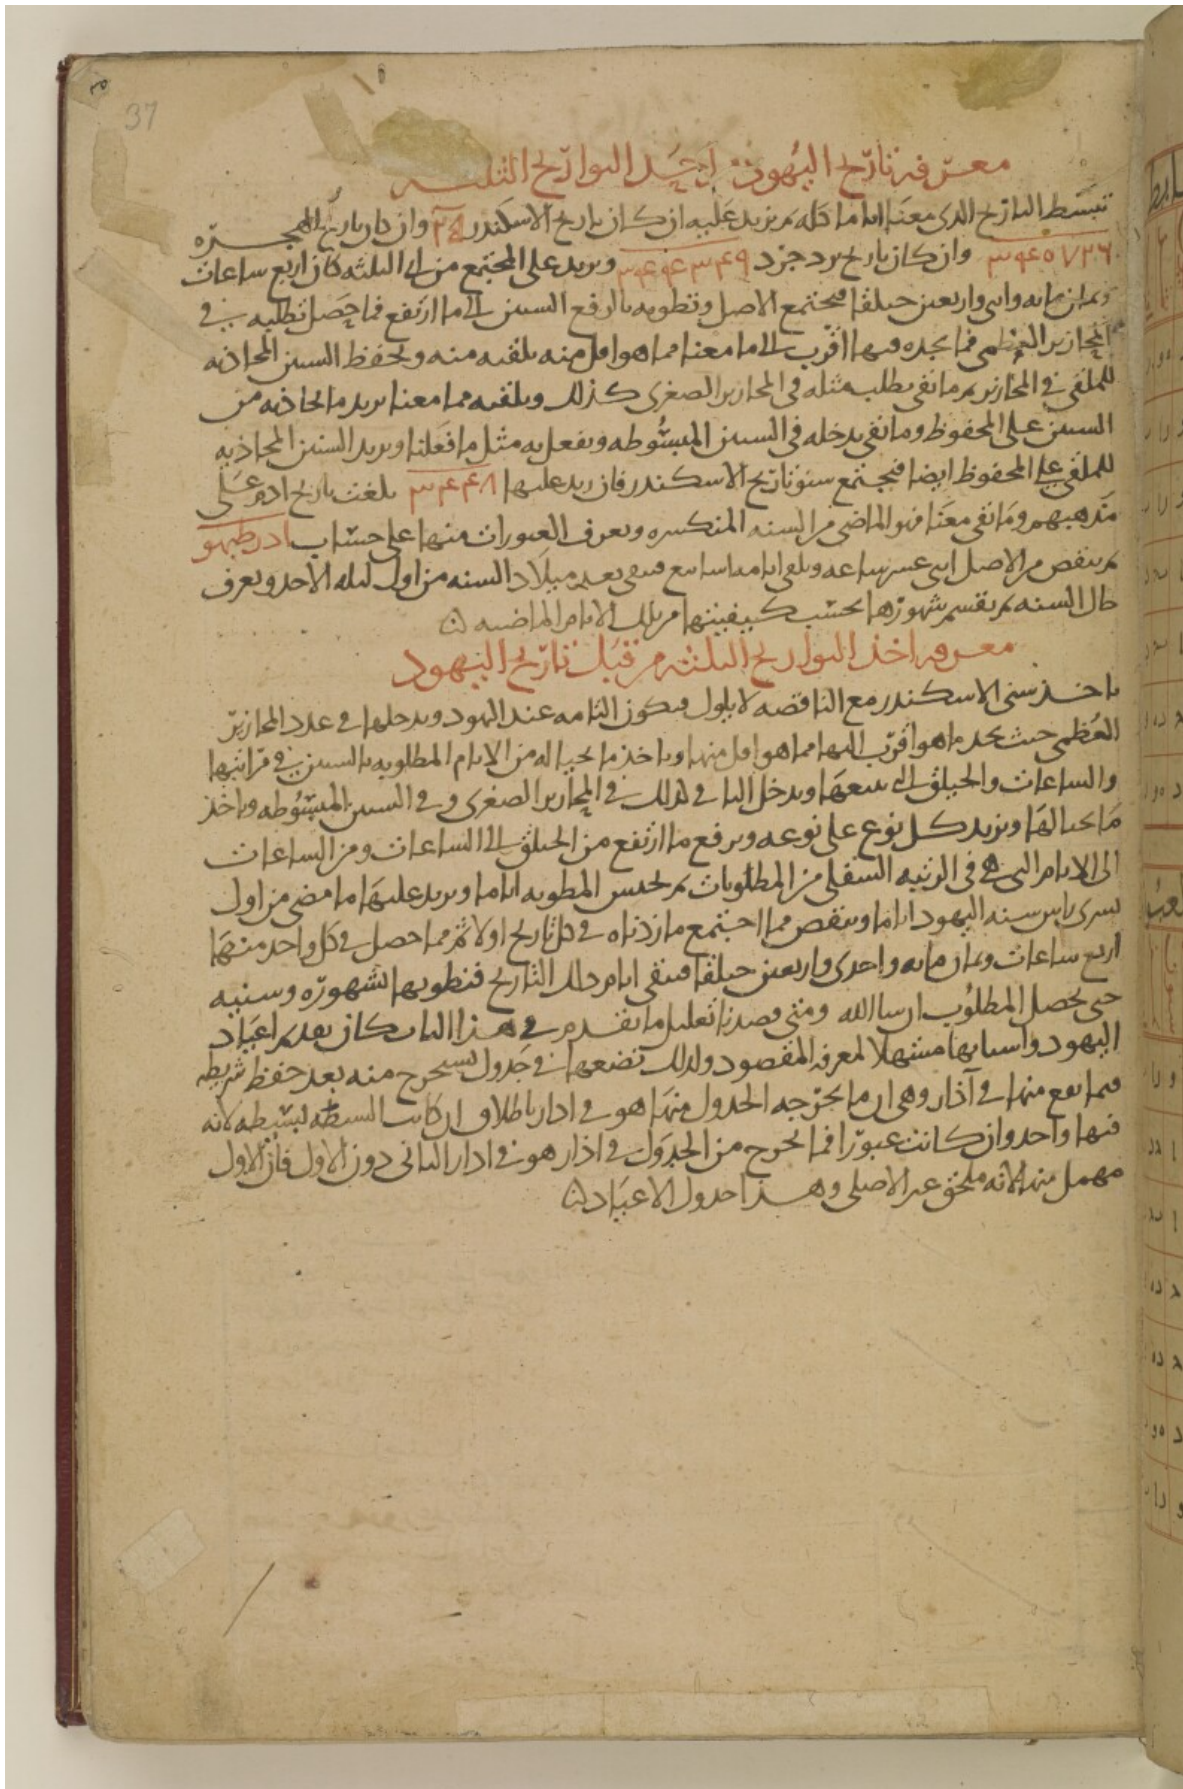 37
معرفة تاريخ اليهود من احد التواريخ الثلثة
نبسط التاريخ الذى معنا اياما كله ثم نزيد عليه ان كان تاريخ الاسكندر وان كان تاريخ الهجرة
٣٤٥٧٣٦ وان كان تاريخ يزدجزد ٣٤٤٤٣٤٩ ونزيد على المجتمع من اى الثلثه كان اربع ساعات
وثمان مايه واحدى واربعين حيلقا فيجتمع الاصل ونطويه بالرفع السنين الى ما ارتفع فما حصل نطلبه فى
المحازير العظمى فما نجده فيها اقرب الى ما معنا مما هو اقل منه نلقيه منه ونحفظ السنين المحاذيه
للملقى فى المحازير ثم ما بقى نطلب مثله فى المحازير الصغرى كذلك ونلقيه مما معنا نزيد ما يحاذيه من
السنين على المحفوظ وما بقى ندخله فى السنين المبسوطه ونفعل به مثل ما فعلنا ونزيد السنين المحاذيه
للملقى على المحفوظ ايضا فيجتمع سنو تاريخ الاسكندر فان زيد عليها ٣٤٤٨ بلغت تاريخ ادم على
مذهبهم وما بقى معنا فهو الماضى من السنه المنكسره ونعرف العبورات منها على حساب ادرطبهو
ثم ننقص من الاصل اثنى عشر ساعه ونلقى ايامه اسابيع فيبقى بعد ميلاد السنه من اول ليله الاحد ونعرف
حال السنه ثم نقسم شهورها بحسب كيفيتها من تلك الايام الماضيه
معرفه اخذ التواريخ الثلثه من قبل تاريخ اليهود
ناخذ سنى الاسكندر مع الناقصه لايلول فيكون التامه عند اليهود وندخلها فى عدد المحازير
العظمى حيث نجد ما هو اقرب اليها مما هو اقل منها وناخذ ما بحياله من الايام المطلوبه بالسنين فى مراتبها
والساعات والحيلق التى تتبعها وندخل الباقى كذلك فى المحازير الصغرى وفى السنين المبسوطه وناخذ
ما بحيالها ونزيد كل نوع على نوعه ونرفع ما ارتفع من الحيلق الى الساعات ومن الساعات
الى الايام التى هى فى الرتبه السفلى من المطلوبات ثم المطويه اياما ونزيد عليها ما مضى من اول
تسرى راس سنه اليهود اياما وننقص مما اجتمع ما زدناه فى كل تاريخ اولا ثم مما حصل فى كل واحد منها
اربع ساعات وثمان مايه واحدى واربعين حيلقا فيبقى ايام ذلك التاريخ فنطويها لشهوره وسنيه
حتى يحصل المطلوب ان شا الله ومتى قصدنا تعليل ما تقدم فى هذا الباب كان تقديم اعياد
اليهود واسبابها مسهلا لمعرفه المقصود ولذلك نضعها فى جدول لتستخرج منه بعد حفظ شريطه
فيما يقع منها فى آذار وهى ان ما يخرجه الجدول منها هو فى اذار باطلاق ان كانت السنه بسيطه لانه
فيها واحد وان كانت عبورا فما يخرج من الجدول فى اذار هو فى ادار الثانى دون الاول فان الاول
مهمل منها لانه ملحق غير الاصلى وهذا جدول الاعياد